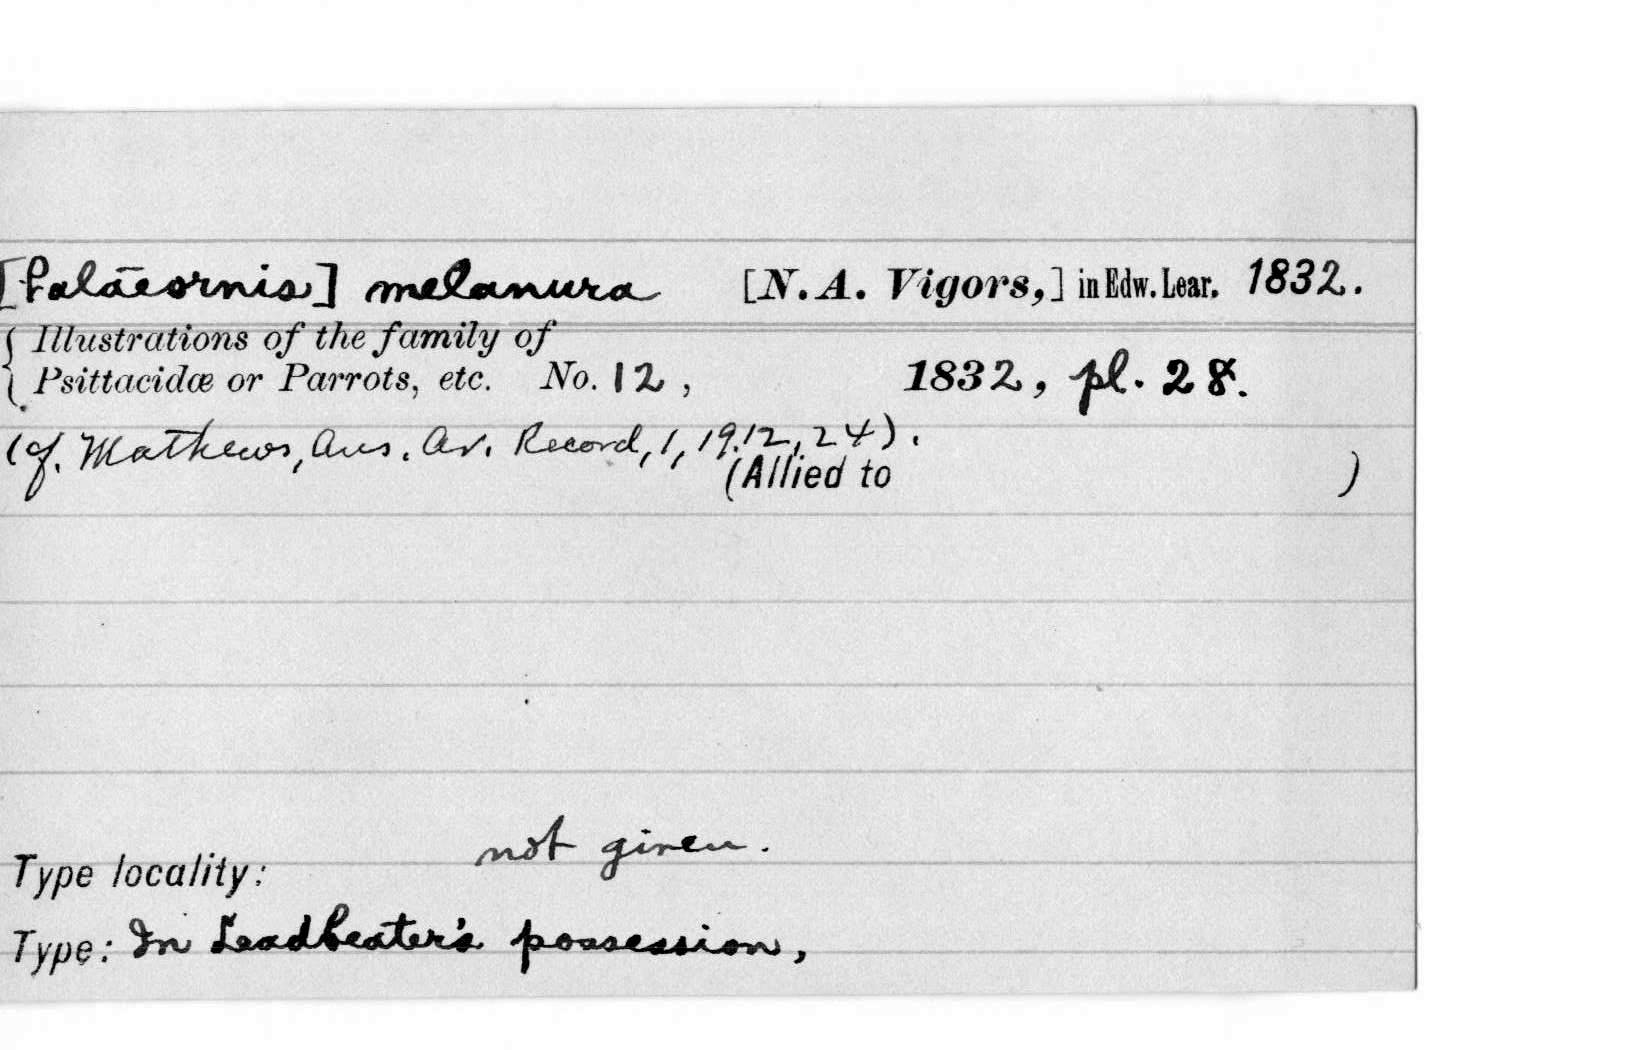 [Palaeornis] melanura [N. A. Vigors,] in Edw. Lear. 1832.
Illustrations of the family of
Psittacidæ or Parrots, etc. No. 12, 1832, pl. 28.
(cf. Mathews, Aus. Av. Record, 1, 1912, 24).
(Allied to )
Type locality: not given.
Type: In Leadbeater's possession,